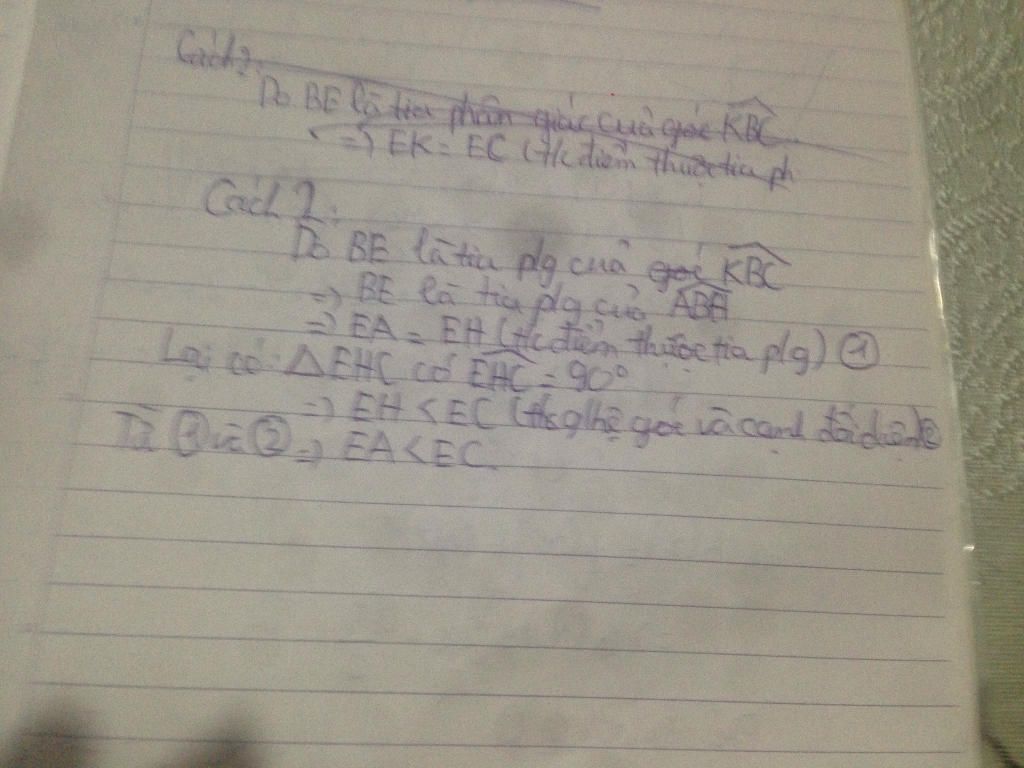 Cách 2:
Do BE là tia phân giác của góc KBC
=> EK = EC (t/c điểm thuộc tia ph
Cách 2:
Do BE là tia p/g của góc KBC
=> BE là tia p/g của ABH
=> EA = EH (t/c điểm thuộc tia p/g) ①
Lại có: △EHC có EHC = 90°
=> EH < EC (t/c q/hệ góc và cạnh đối diện) ②
Từ ① và ② => EA < EC